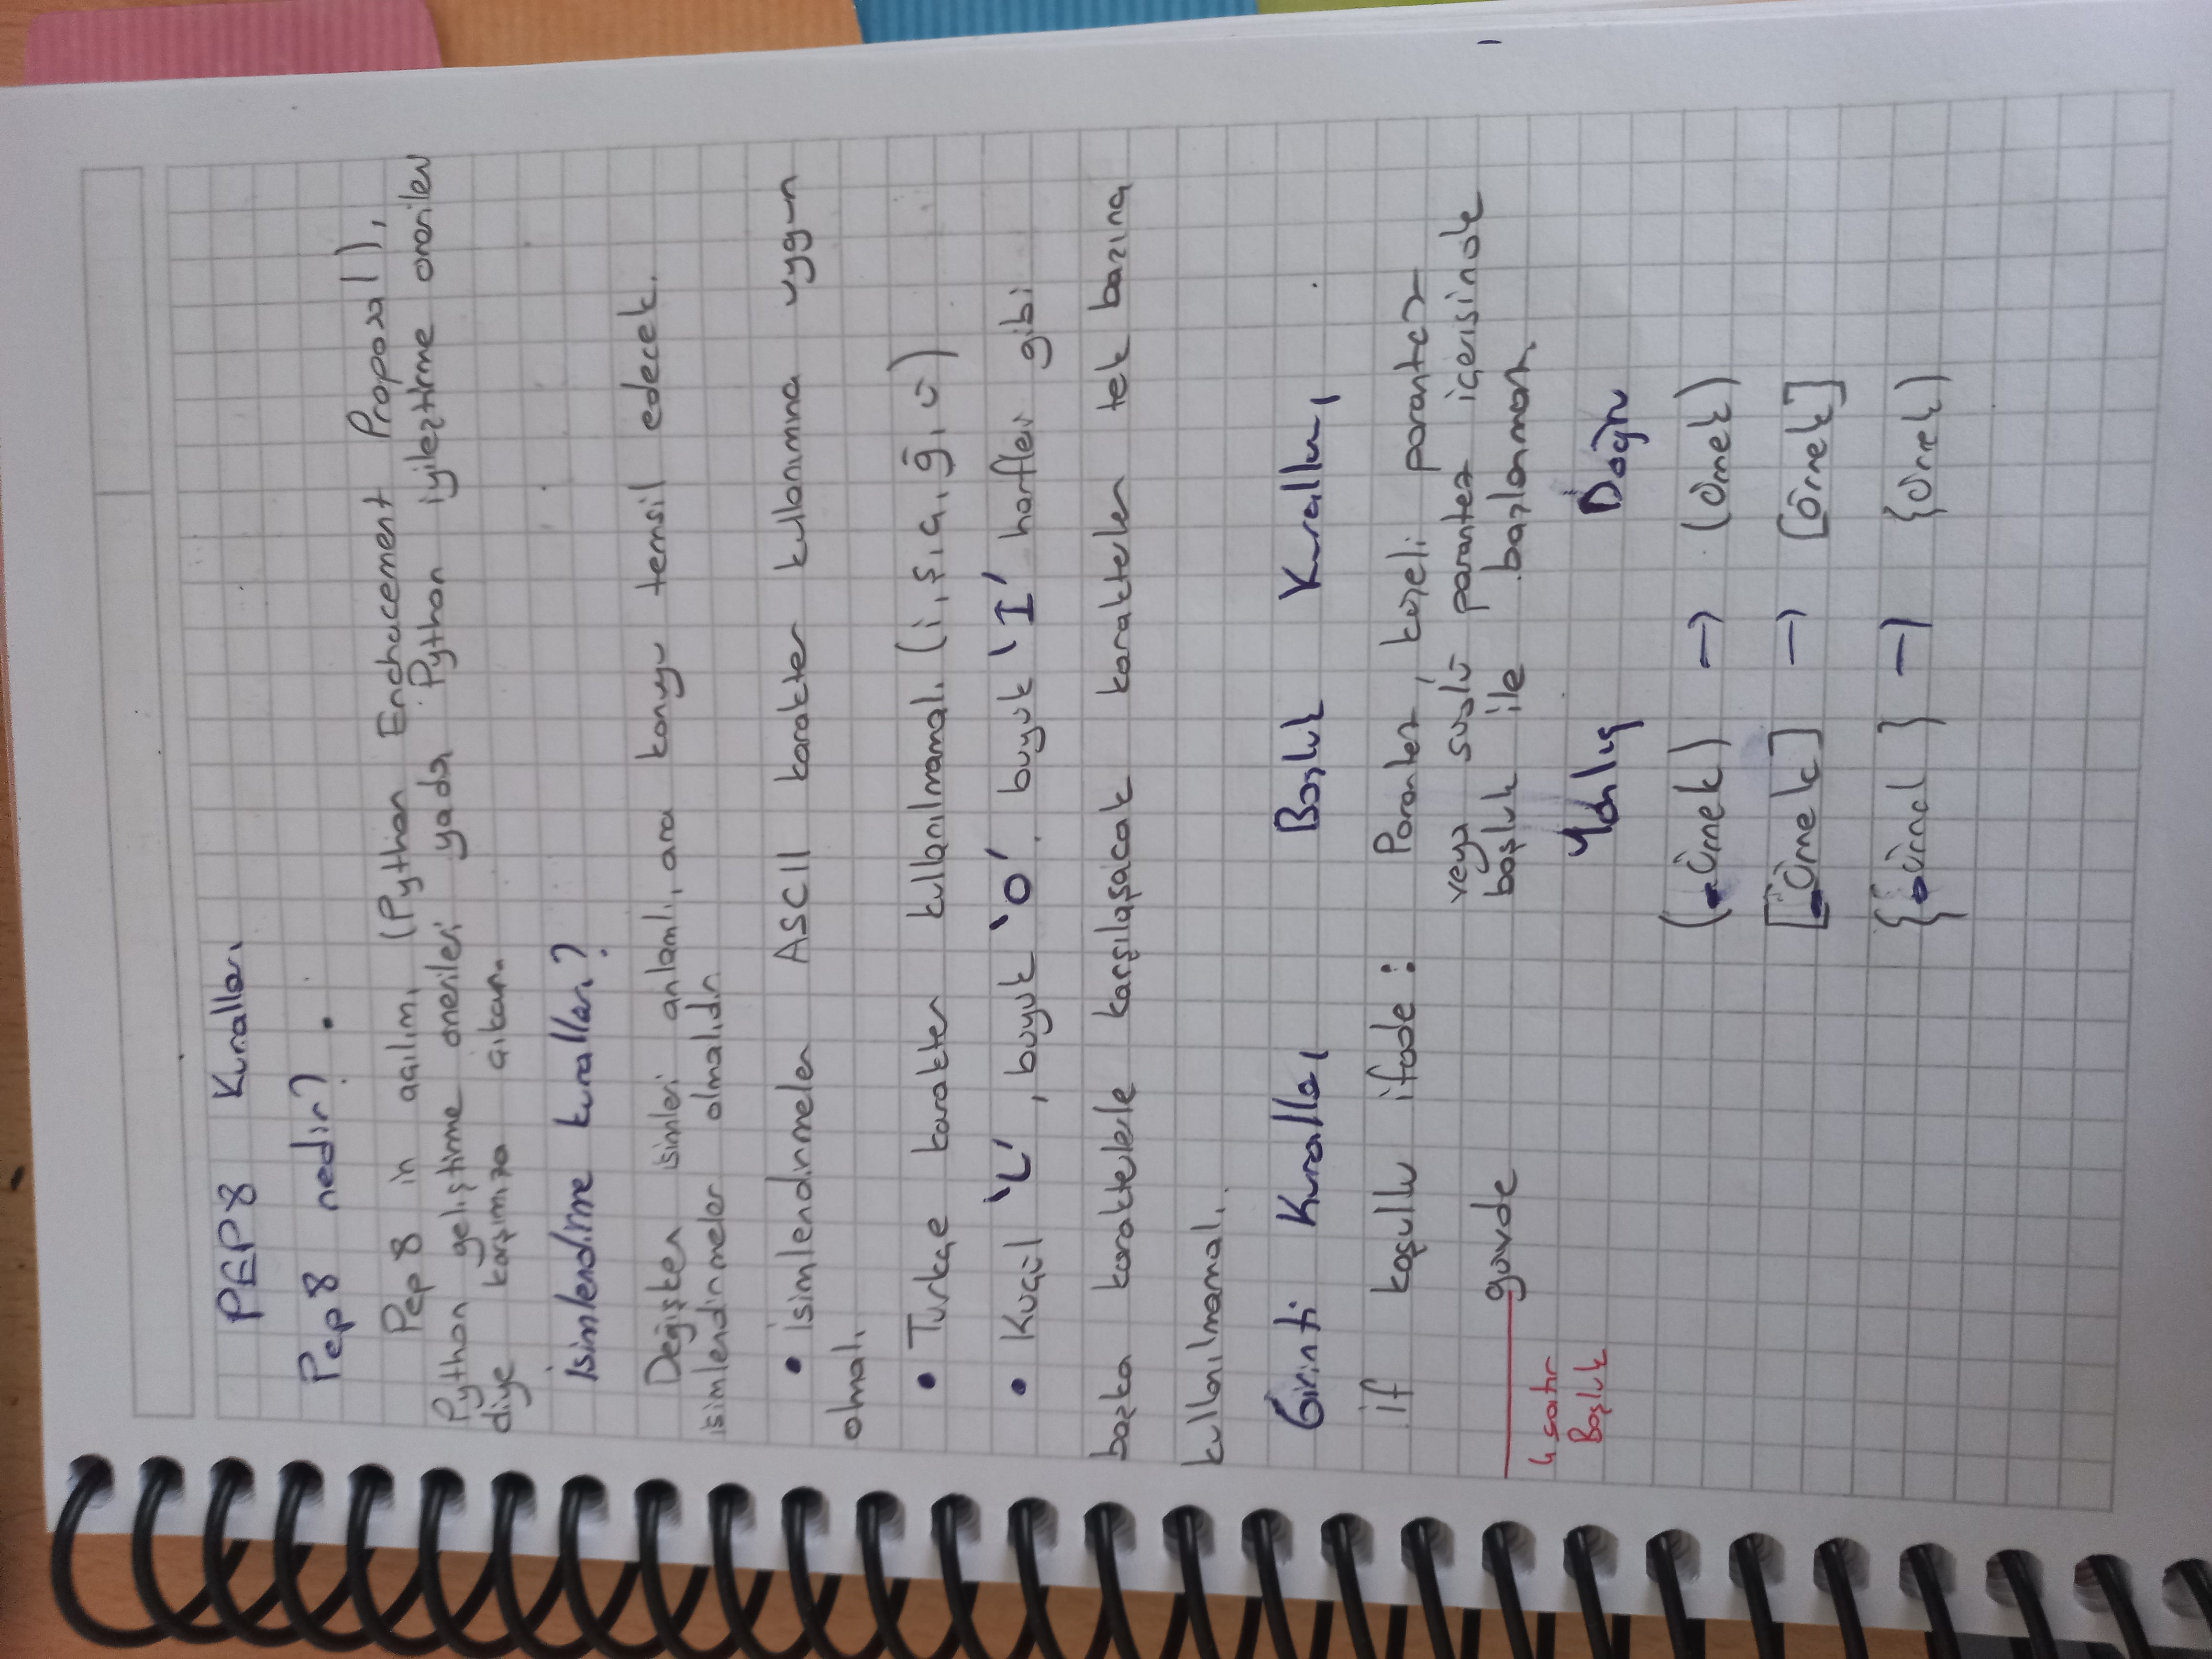 PEP8 Kuralları
Pep8 nedir?
Pep8 in açılımı (Python Enchacement Proposal),
Python geliştirme önerileri yada Python iyileştirme önerileri
diye karşımıza çıkar.
İsimlendirme kuralları?
Değişken isimleri anlamlı, ana konuyu temsil edecek.
isimlendirmeler olmalıdır
• isimlendirmeler ASCII karakter kullanımına uygun
olmalı
• Turkçe karakter kullanılmamalı (i, ş, ç, ğ, ü)
• Küçül 'L', büyük 'O'. büyük 'I' harfleri gibi
başka karakterlerle karşılaşacak karakterler tek başına
kullanılmamalı.
Girinti Kuralları Boşluk Kuralları
if koşullu ifade: Parantez, köşeli parantez
veya süslü parantez içerisinde
govde boşluk ile başlanmaz
4 satır
Boşluk
Yanlış Doğru
(_Örnek) → (Örnek)
[_Örnek] → [Örnek]
{_Örnek } → {Örnek)